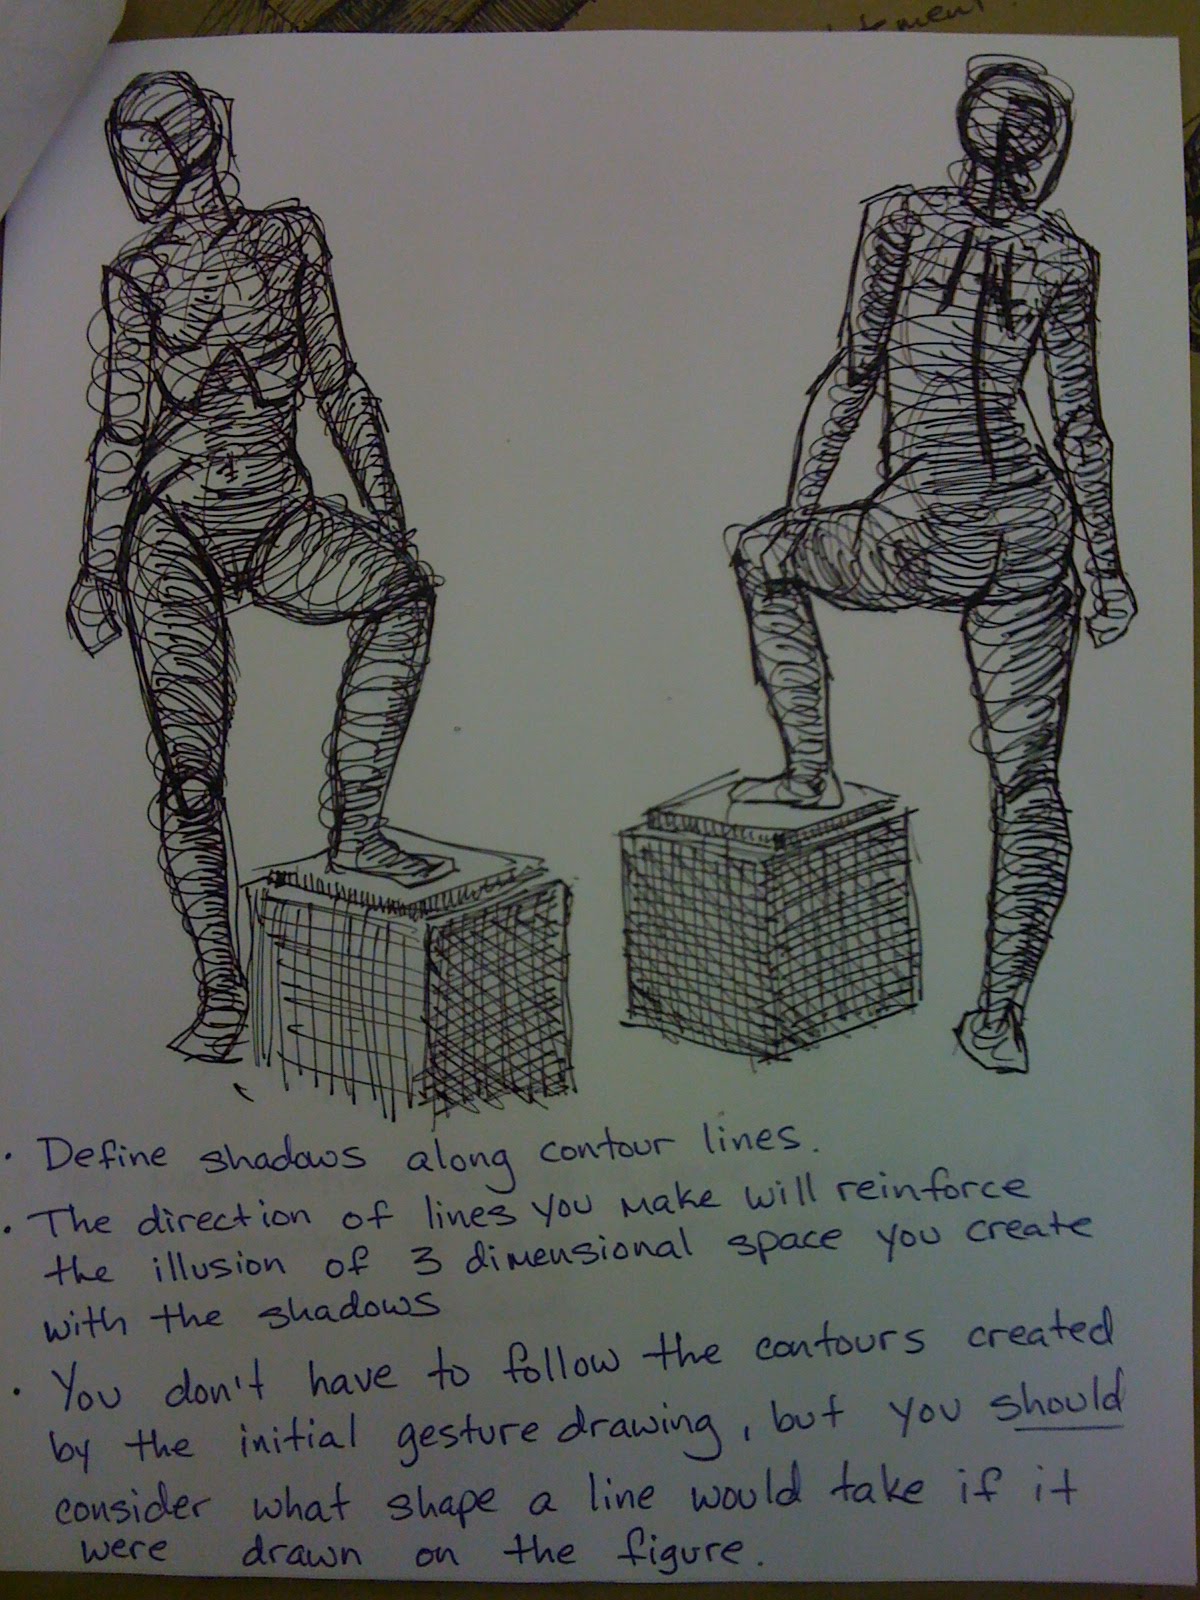 tment.
• Define shadows along contour lines.
• The direction of lines you make will reinforce
the illusion of 3 dimensional space you create
with the shadows
• You don't have to follow the contours created
by the initial gesture drawing, but you should
consider what shape a line would take if it
were drawn on the figure.